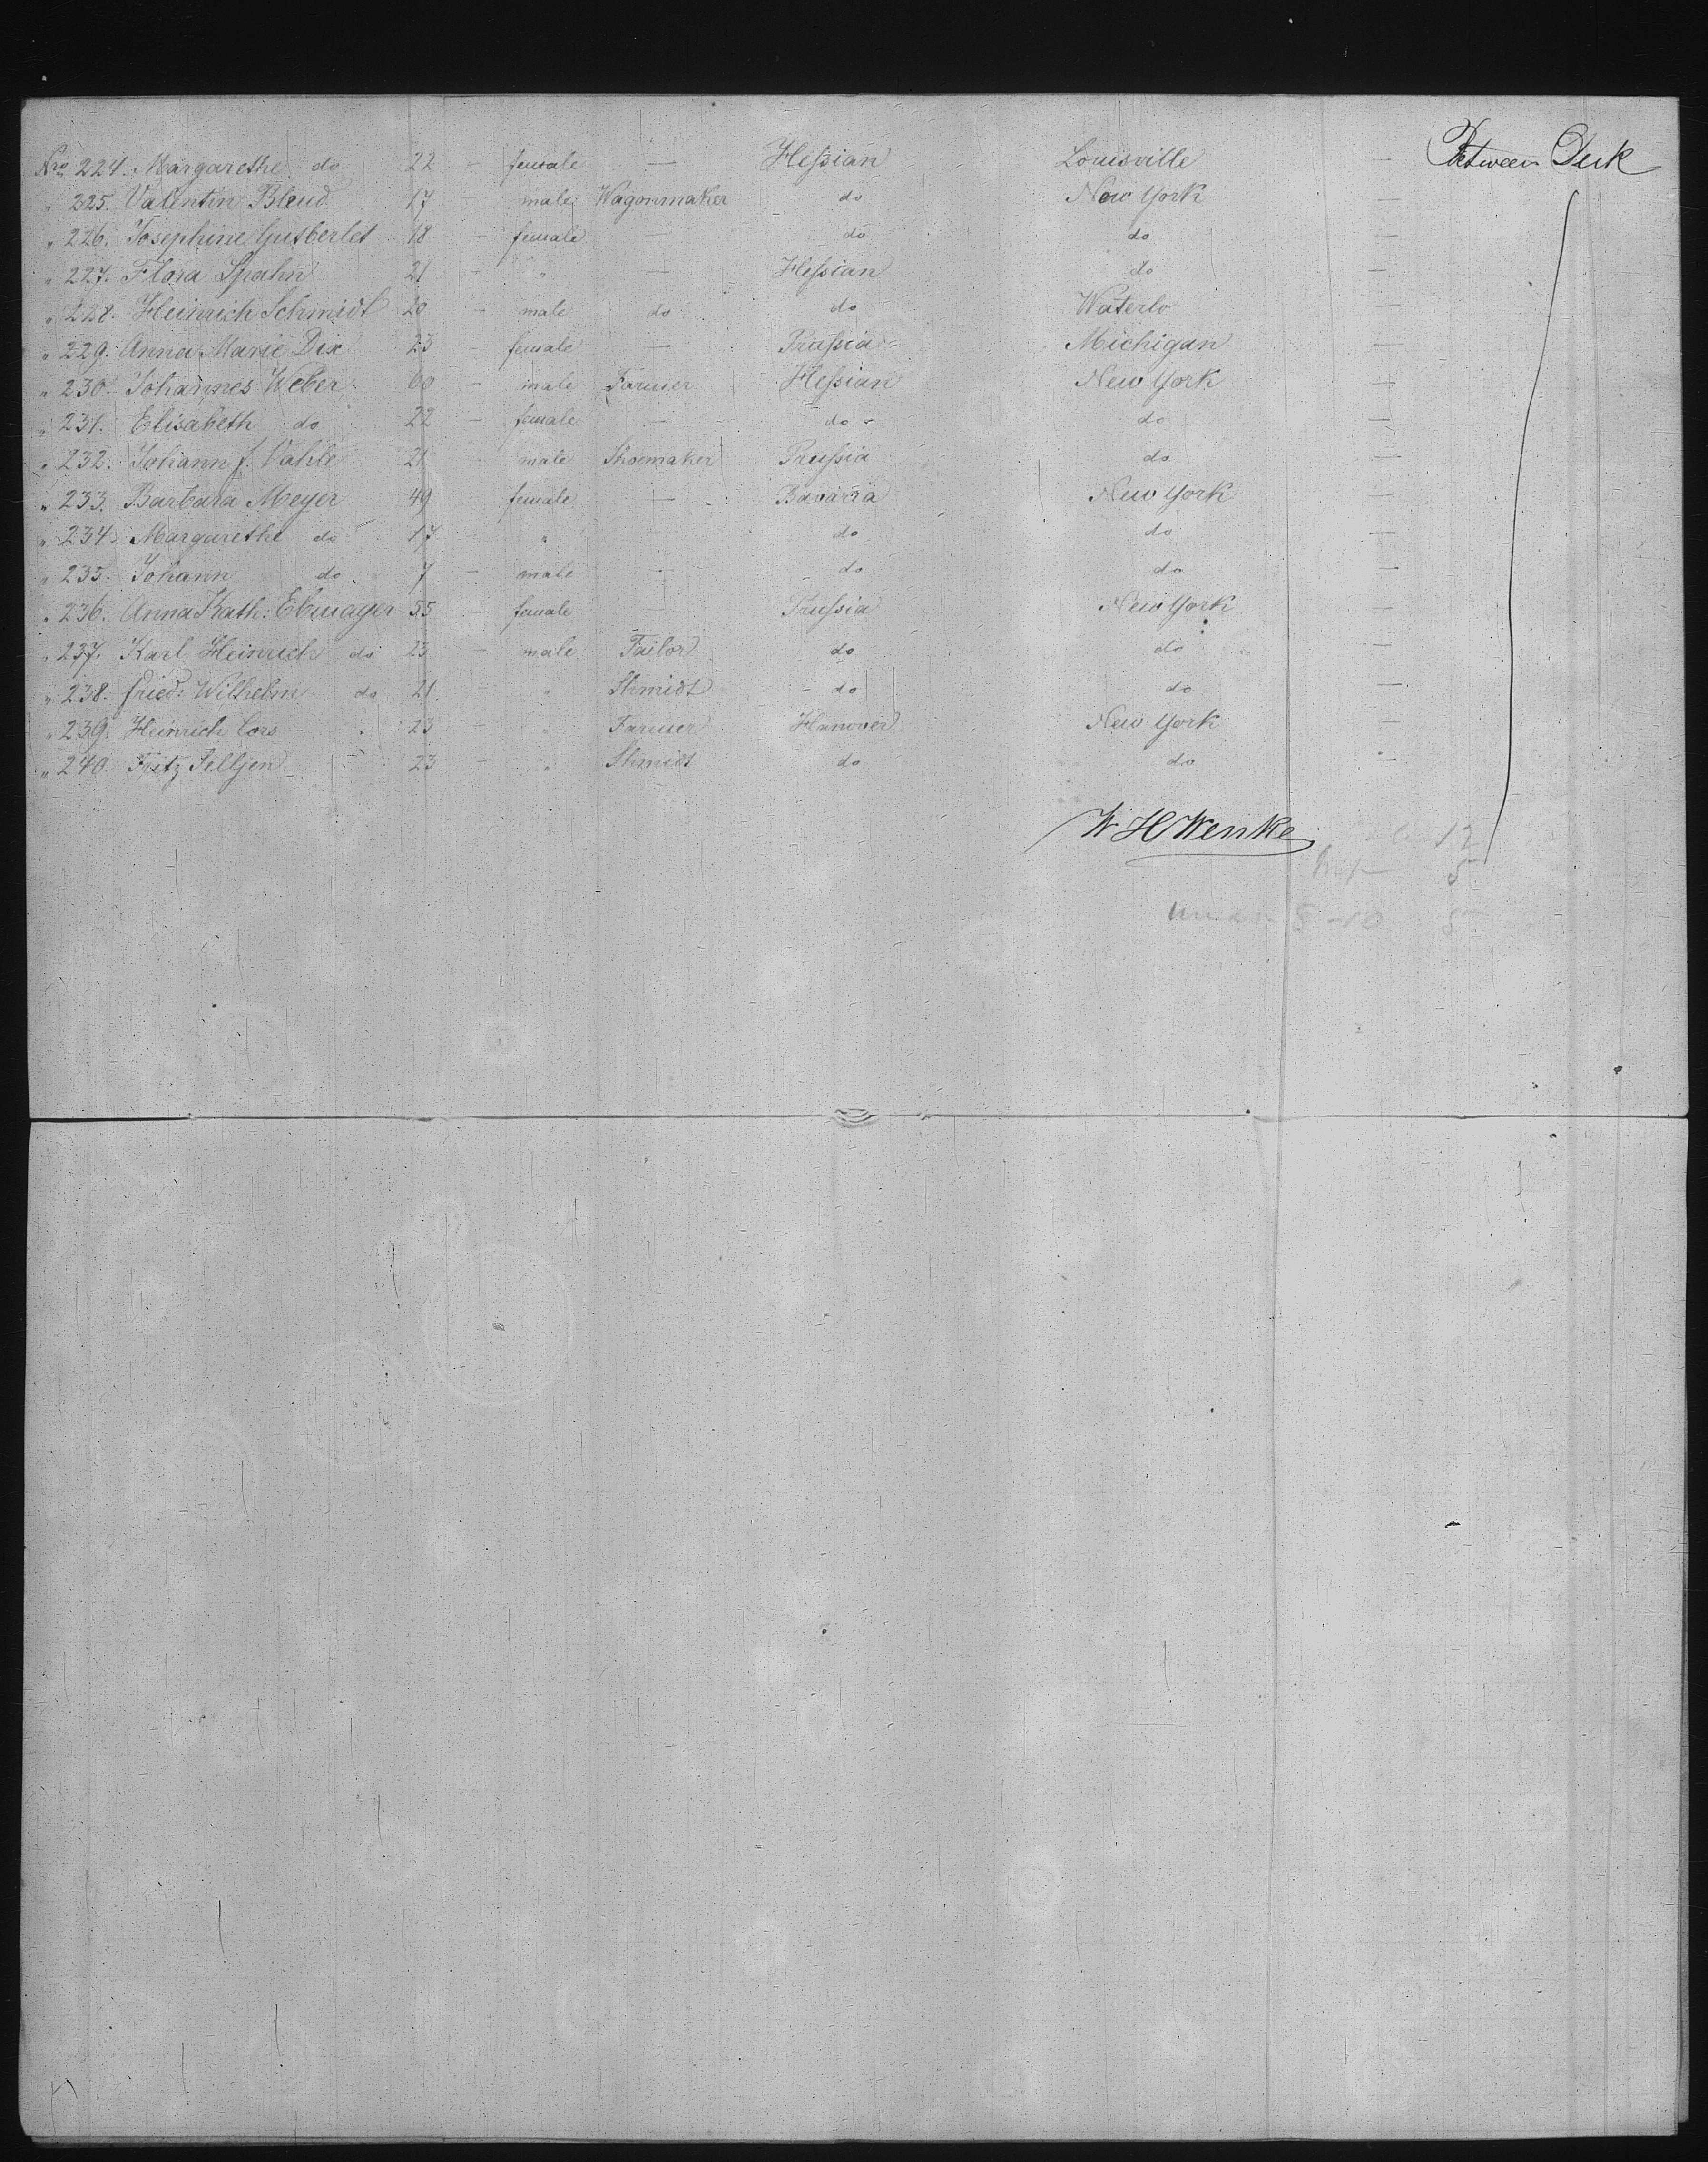 Nro 224. Margarethe do 22 – female — Heſsian Louisville — Between Deck
" 225. Valentin Bleud 17 – male Wagonmaker do New York —
" 226. Josephine Gutberlet 18 – female — do do —
" 227. Flora Spahn 21 – " — Heſsian do —
" 228. Heinrich Schmidt 20 – male do do Waterlo —
" 229. Anna Marie Dix 23 – female — Pruſsia Michigan —
" 230. Johannes Weber 60 – male Farmer Heſsian New York —
" 231. Elisabeth do 22 – female — do do —
" 232. Johann f. Vahle 21 – male Shoemaker Pruſsia do —
" 233. Barbara Meyer 49 female — Bavaria New York —
" 234. Margarethe do 17 – " — do do —
" 235. Johann do 7 – male — do do —
" 236. Anna Kath: Ebmayer 55 – female — Pruſsia New York —
" 237. Karl Heinrich do 23 – male Tailor do do —
" 238. fried: Wilhelm do 21 – " Shmidt do do —
" 239. Heinrich Cors 23 – " Farmer Hanover New York —
" 240. Fritz Felljen 23 – " Shmidt do do —
W H Wenke
12
5
8–10